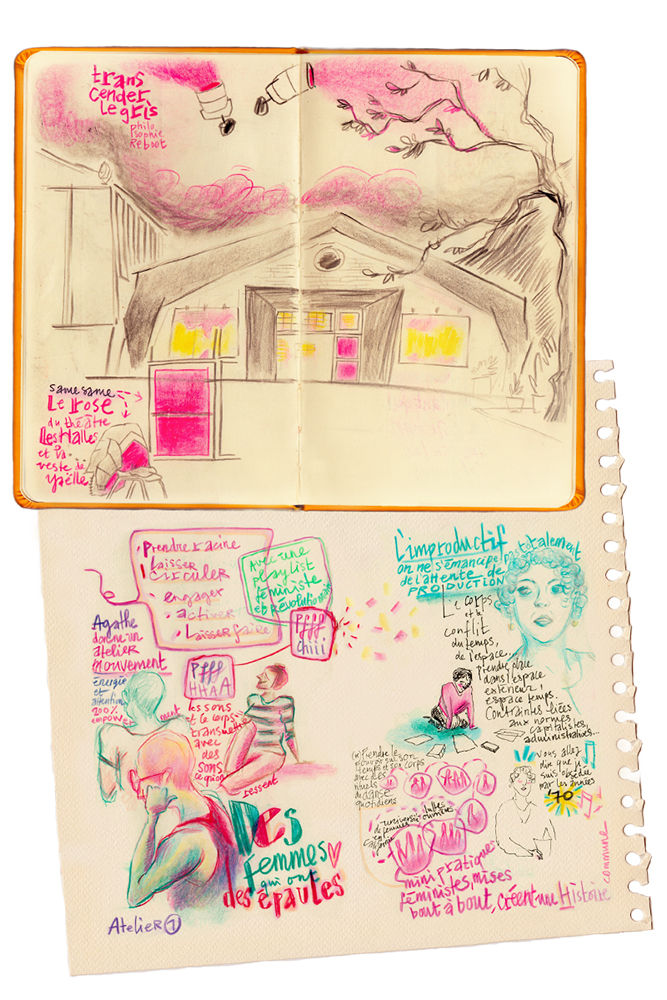 trans
cender
le gris
philo
sophie
Reboot
same same
Le rose
du théâtre
des Halles
et la
veste de
Yaëlle
Prendre racine
laisser
circuler
engager
activer
Laisser faire
Avec une
playlist
féministe
et Révolutionnaire
Pfff
chiii
Pfff
HHAA
Agathe
donne un
atelier
mouvement
énergie
et
attention
200%
empowerment
les sons
et le corps
transmettre
avec
des
sons
ce qu'on
ressent
Des
femmes
qui ont
des épaules
Atelier 1
L'improductif
totalement
on ne s'émancipe
de l'attente de
PRODUCTION
Le corps
et le
conflit
du temps,
de l'espace...
Prendre place
dans l'espace
extérieur !
espace temps.
Contraintes liées
aux normes
capitalistes
administratives...
(re)Prendre le
pouvoir sur son
temps et son corps
avec les
rituels
de danse
quotidiens
vous allez
dire que je
suis obsédée
par les années
'70
université
de femmes
en
Californie
luttes
ouvrières
mini pratiques
féministes mises
bout à bout, créent une Histoire
commune